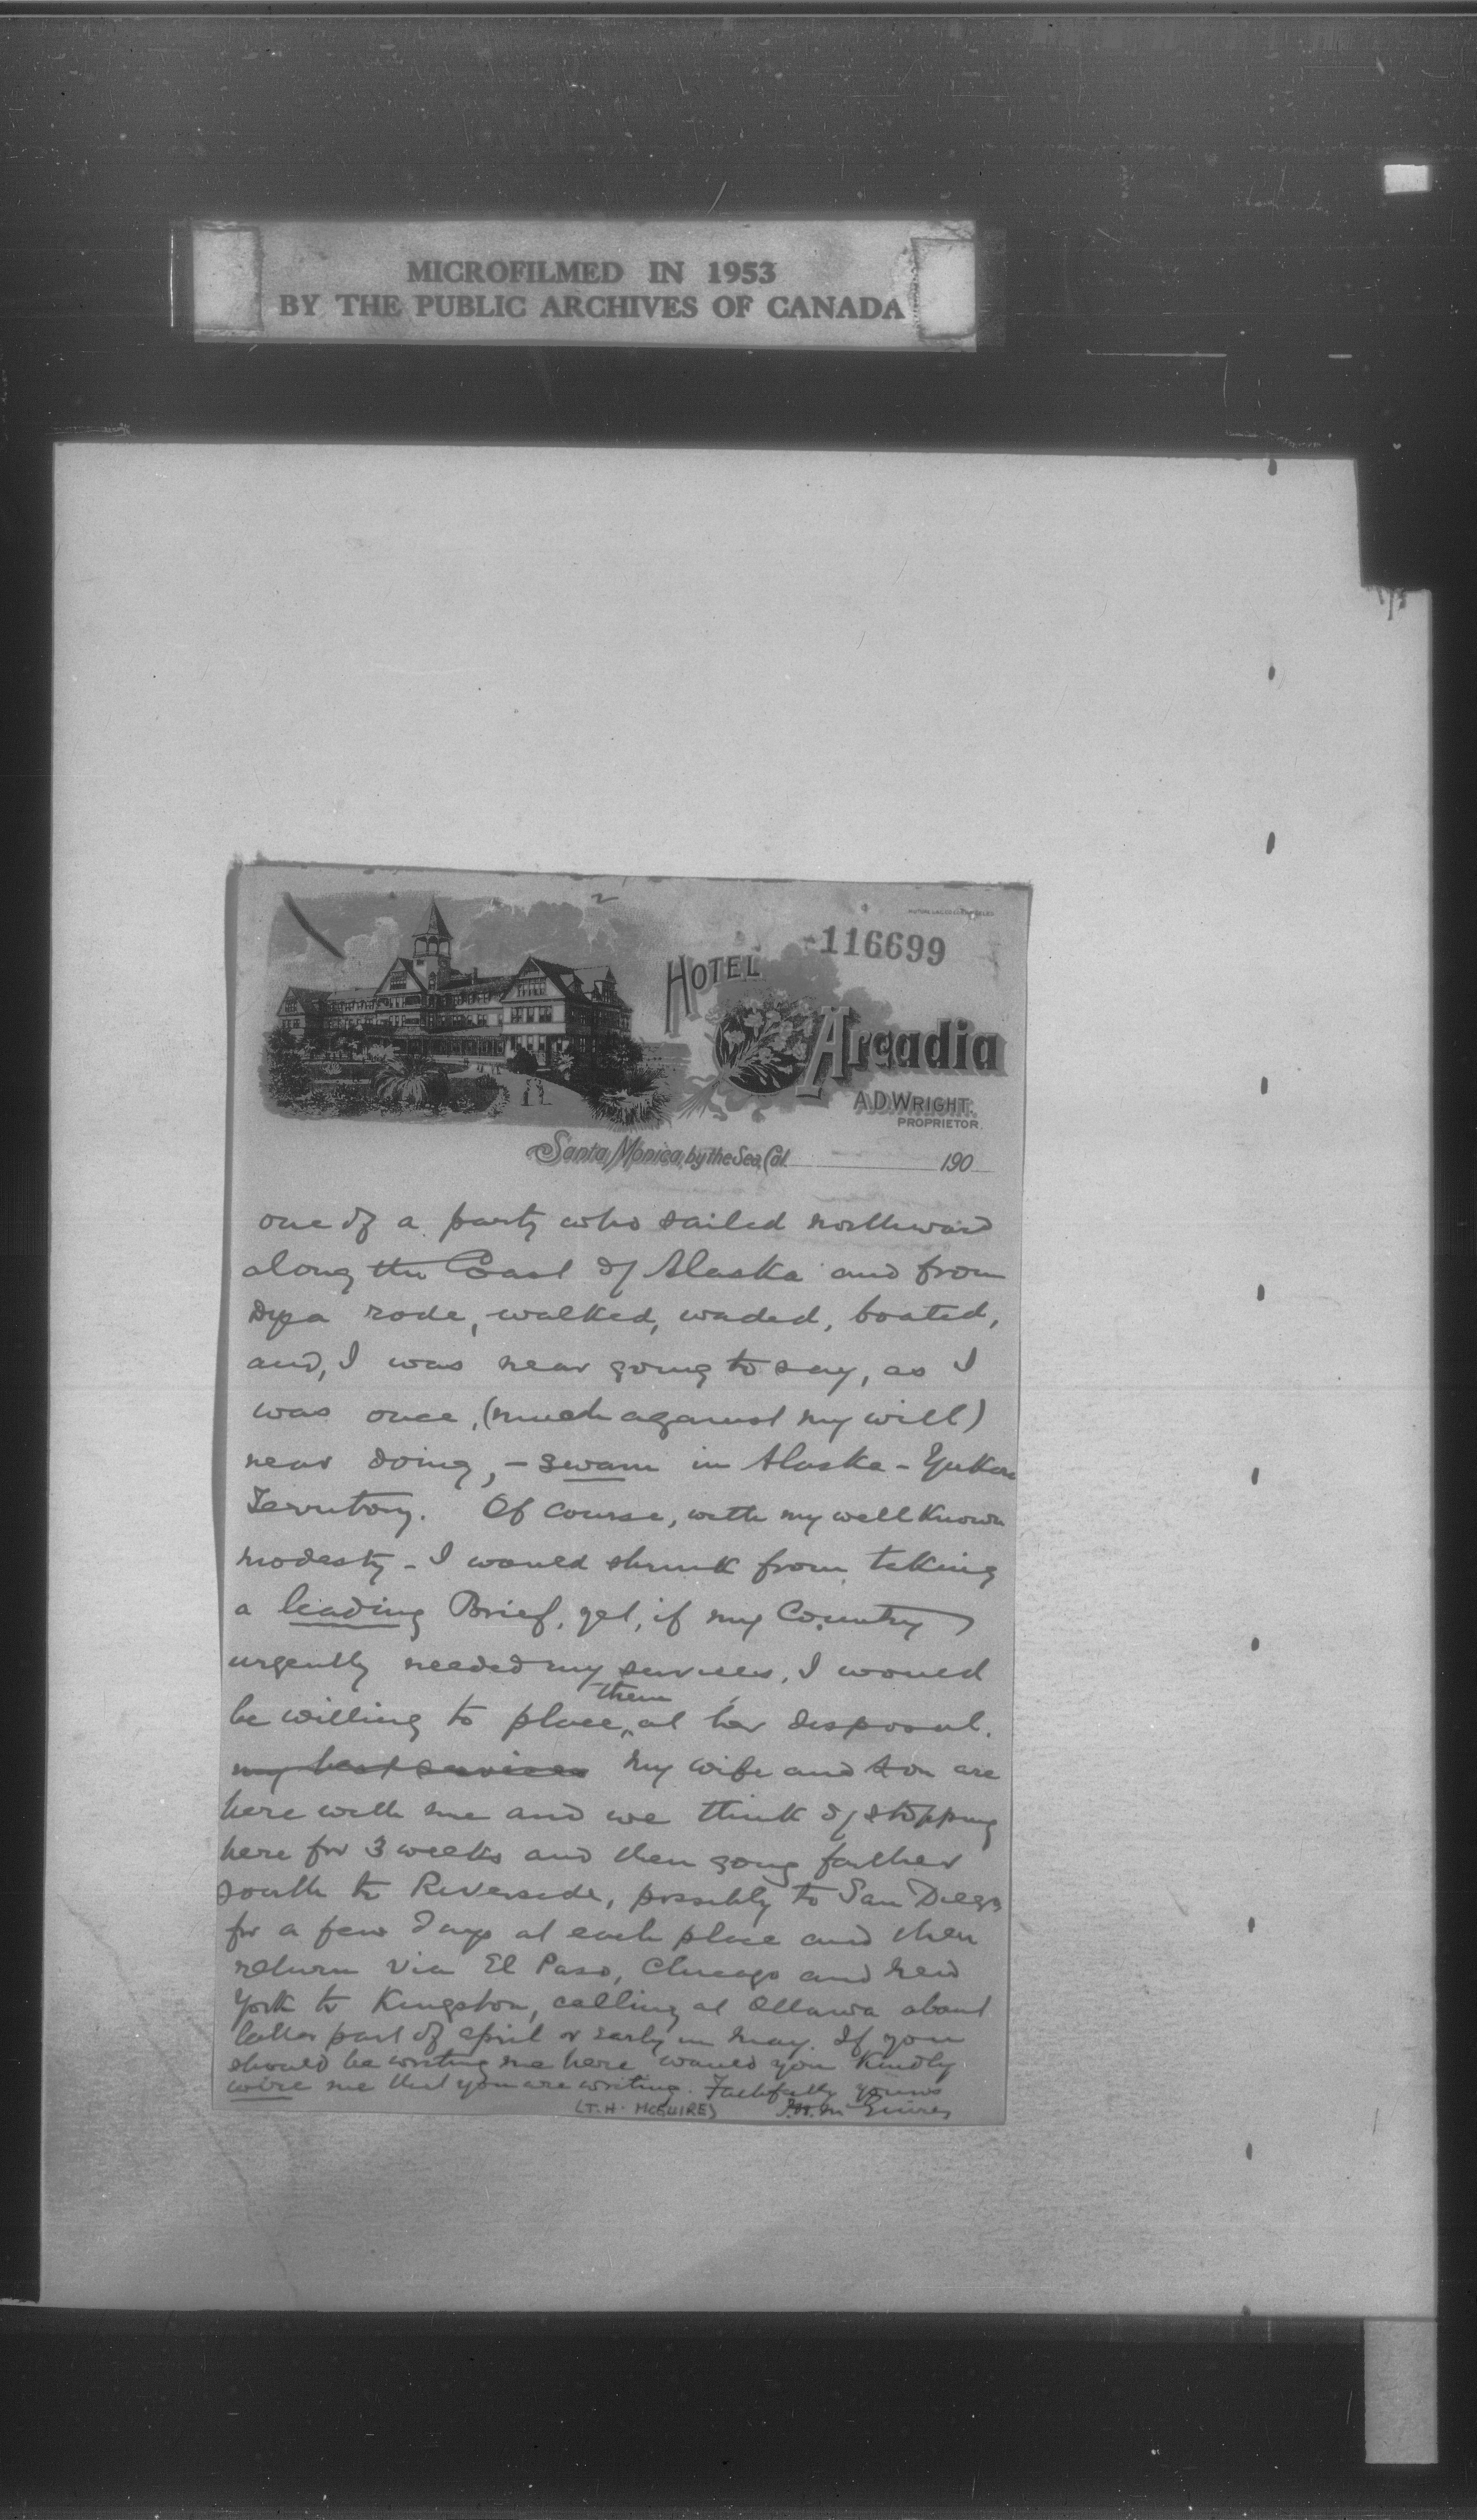 MICROFILMED IN 1953
BY THE PUBLIC ARCHIVES OF CANADA
2
116699
HOTEL
Arcadia
A.D. WRIGHT.
PROPRIETOR.
Santa Monica, by the Sea, Cal. 190
one of a party who sailed northward
along the Coast of Alaska and from
Dyea rode, walked, waded, boated,
and, I was near going to say, as I
was once, (much against my will)
near doing, - swam in Alaska - Yukon
Territory. Of course, with my well known
modesty - I would shrink from taking
a leading Brief, yet, if my Country
urgently needed my services, I would
be willing to place them at her disposal.
my best services My wife and son are
here with me and we think of stopping
here for 3 weeks and then going farther
south to Riverside, possibly to San Diego
for a few days at each place and then
return via El Paso, Chicago and New
York to Kingston, calling at Ottawa about
latter part of April or early in May. If you
should be writing me here would you kindly
wire me that you are writing. Faithfully yours
(T.H. McGUIRE) T.H. McGuire